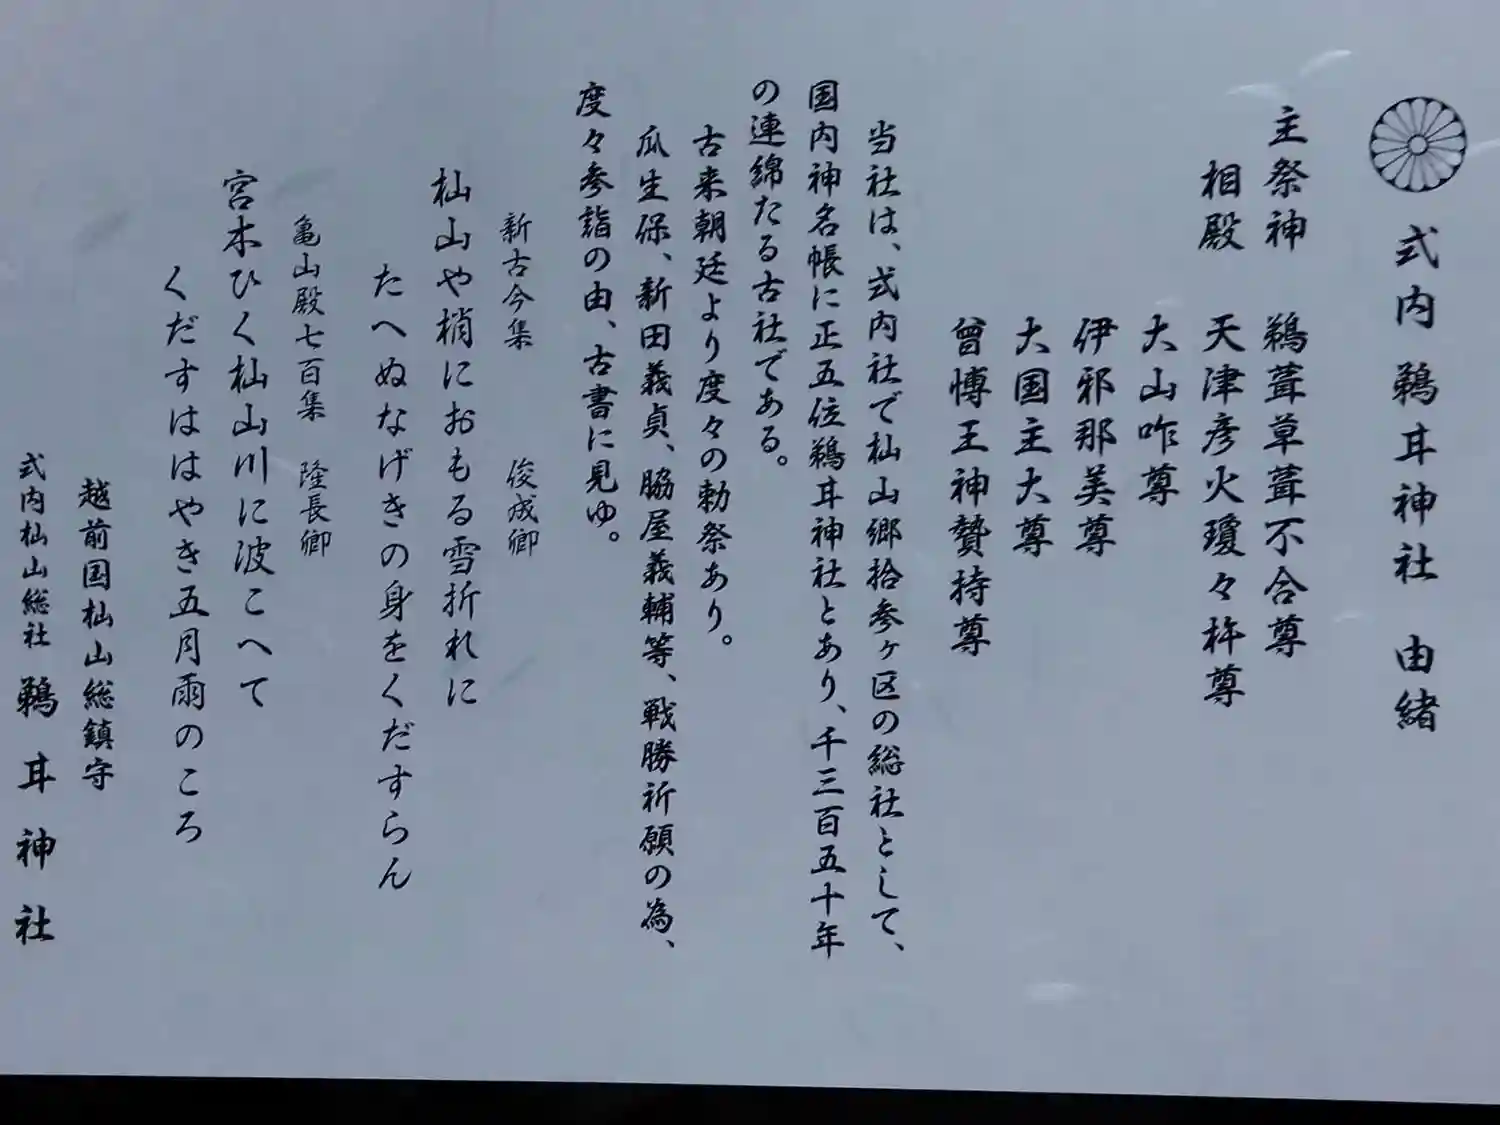 式内 鵜甘神社 由緒
主祭神 鵜葺草葺不合尊
相殿 天津彦火瓊々杵尊
大山咋尊
伊邪那美尊
大国主大尊
曾博王神贄持尊
当社は、式内社で杣山郷拾参ヶ区の総社として、
国内神名帳に正五位鵜甘神社とあり、千三百五十年
の連綿たる古社である。
古来朝廷より度々の勅祭あり。
瓜生保、新田義貞、脇屋義輔等、戦勝祈願の為、
度々参詣の由、古書に見ゆ。
新古今集 俊成卿
杣山や梢におもる雪折れに
たへぬなげきの身をくだすらん
亀山殿七百集 隆長卿
宮木ひく杣山川に波こへて
くだすははやき五月雨のころ
越前国杣山総鎮守
式内杣山総社 鵜甘神社